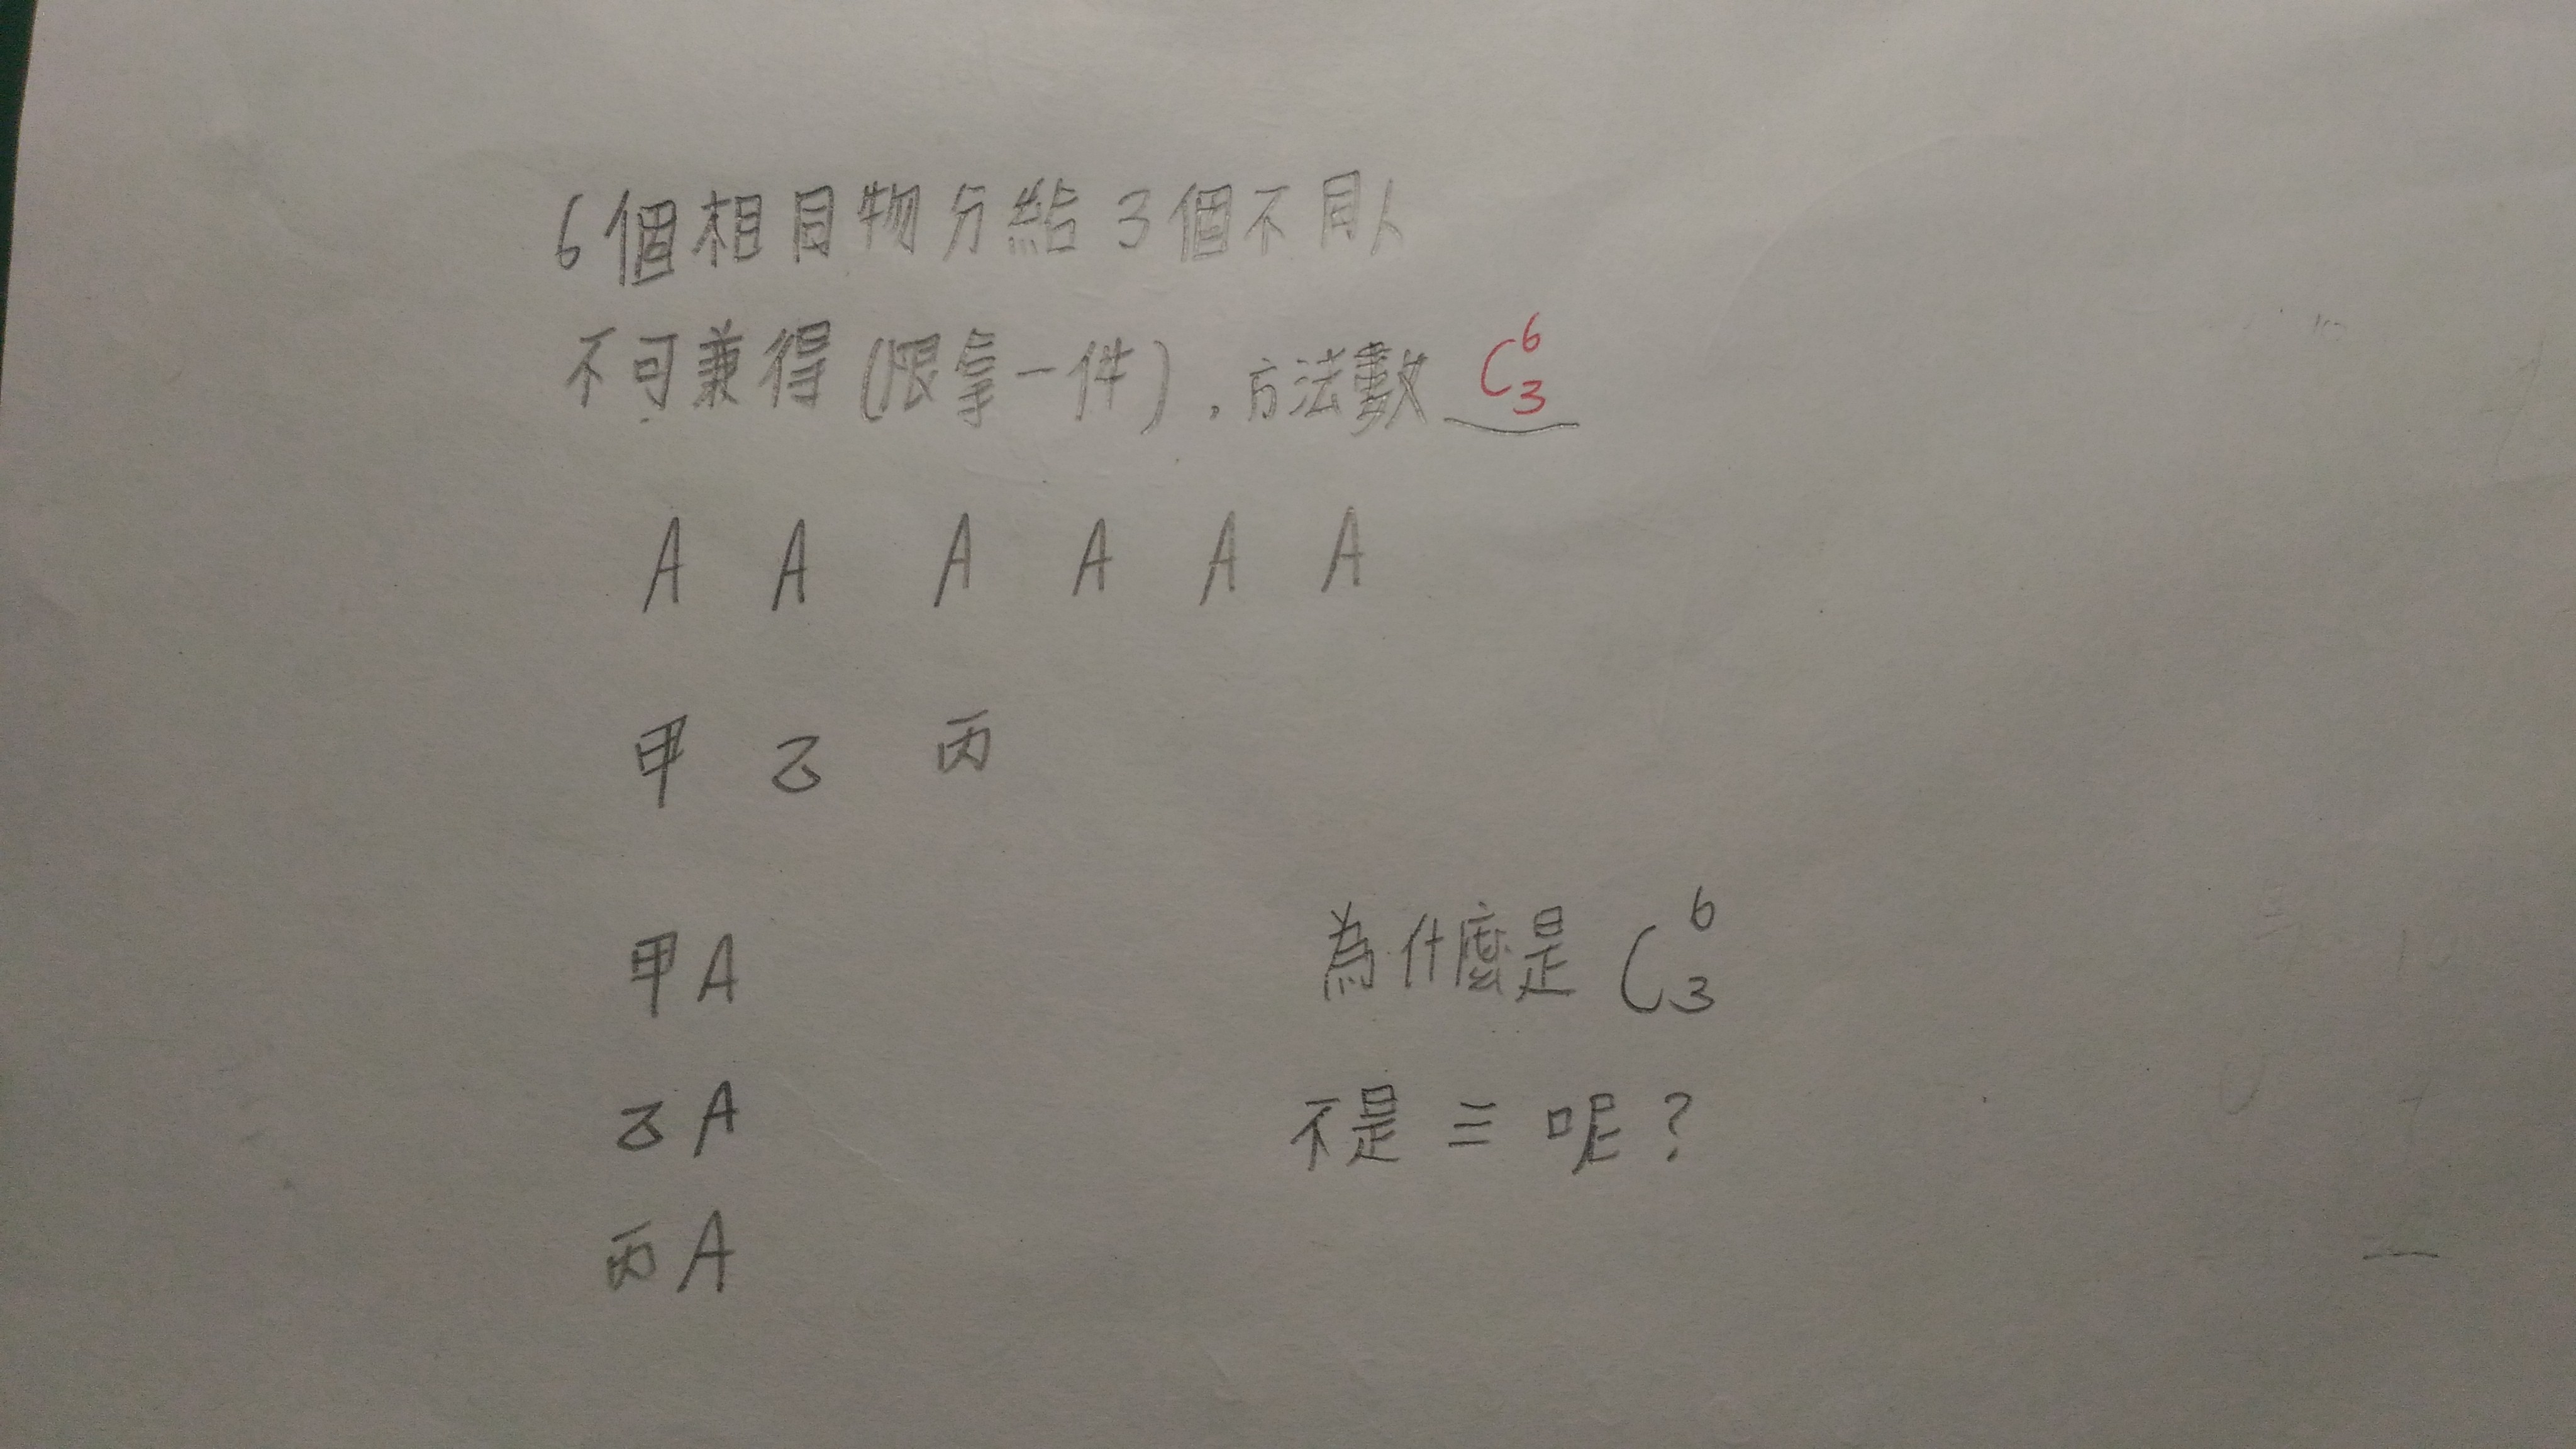 6個相同物分給3個不同人
不可兼得(限拿一件),方法數 C⁶₃
A A A A A A
甲 乙 丙
甲A
乙A
丙A
為什麼是 C⁶₃
不是 三 呢?